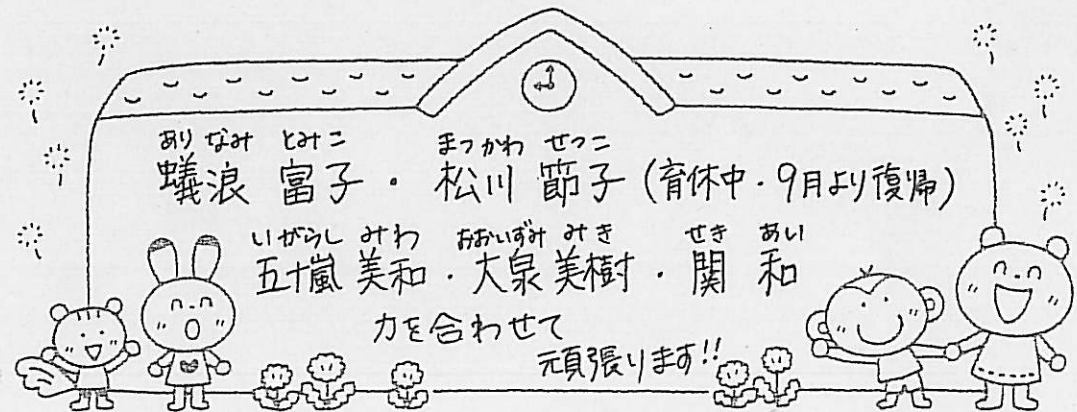 ありなみ とみこ まつかわ せつこ
蟻浪 富子・松川 節子(育休中・9月より復帰)
いがらし みわ おおいずみ みき せき あい
五十嵐 美和・大泉 美樹・関 和
力を合わせて
頑張ります!!